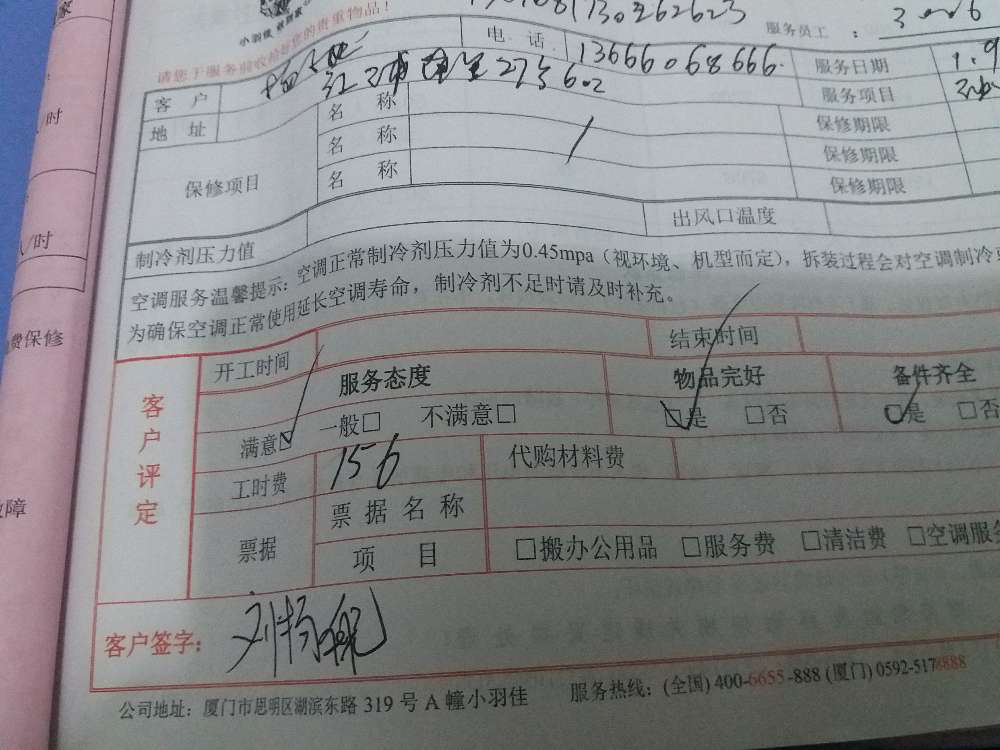 小羽佳
服务员工 :
请您于服务前收拾好您的贵重物品!
客 户
电 话 13666068666.
服务日期 1.9
地 址 27号602
服务项目
保修项目
名 称
保修期限
名 称
保修期限
名 称
保修期限
制冷剂压力值
出风口温度
空调服务温馨提示:空调正常制冷剂压力值为0.45mpa(视环境、机型而定),拆装过程会对空调制冷
为确保空调正常使用延长空调寿命,制冷剂不足时请及时补充。
客户评定
开工时间
结束时间
服务态度 物品完好 备件齐全
满意☑ 一般□ 不满意□ ☑是 □否 ☑是 □否
工时费 156 代购材料费
票据
票 据 名 称
项 目 □搬办公用品 □服务费 □清洁费 □空调服务
客户签字:
公司地址:厦门市思明区湖滨东路 319 号 A 幢小羽佳 服务热线:(全国) 400-6655-888 (厦门) 0592-5178888
/时
/时
费保修
障